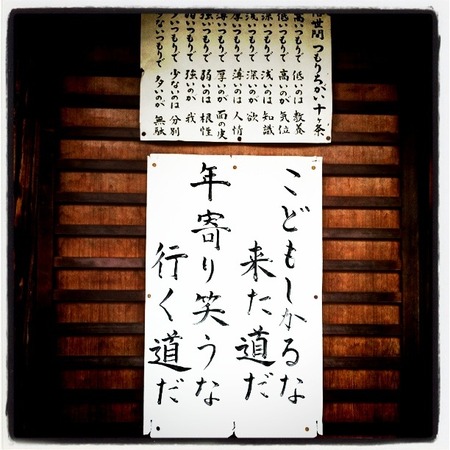 世間 つもりちがい十ヶ条
高いつもりで 低いのは 教養
低いつもりで 高いのが 気位
深いつもりで 浅いのは 知識
浅いつもりで 深いのが 欲
厚いつもりで 薄いのは 人情
薄いつもりで 厚いのが 面の皮
強いつもりで 弱いのは 根性
弱いつもりで 強いのが 我
多いつもりで 少ないのは 分別
ないつもりで 多いのが 無駄
こどもしかるな
来た道だ
年寄り笑うな
行く道だ